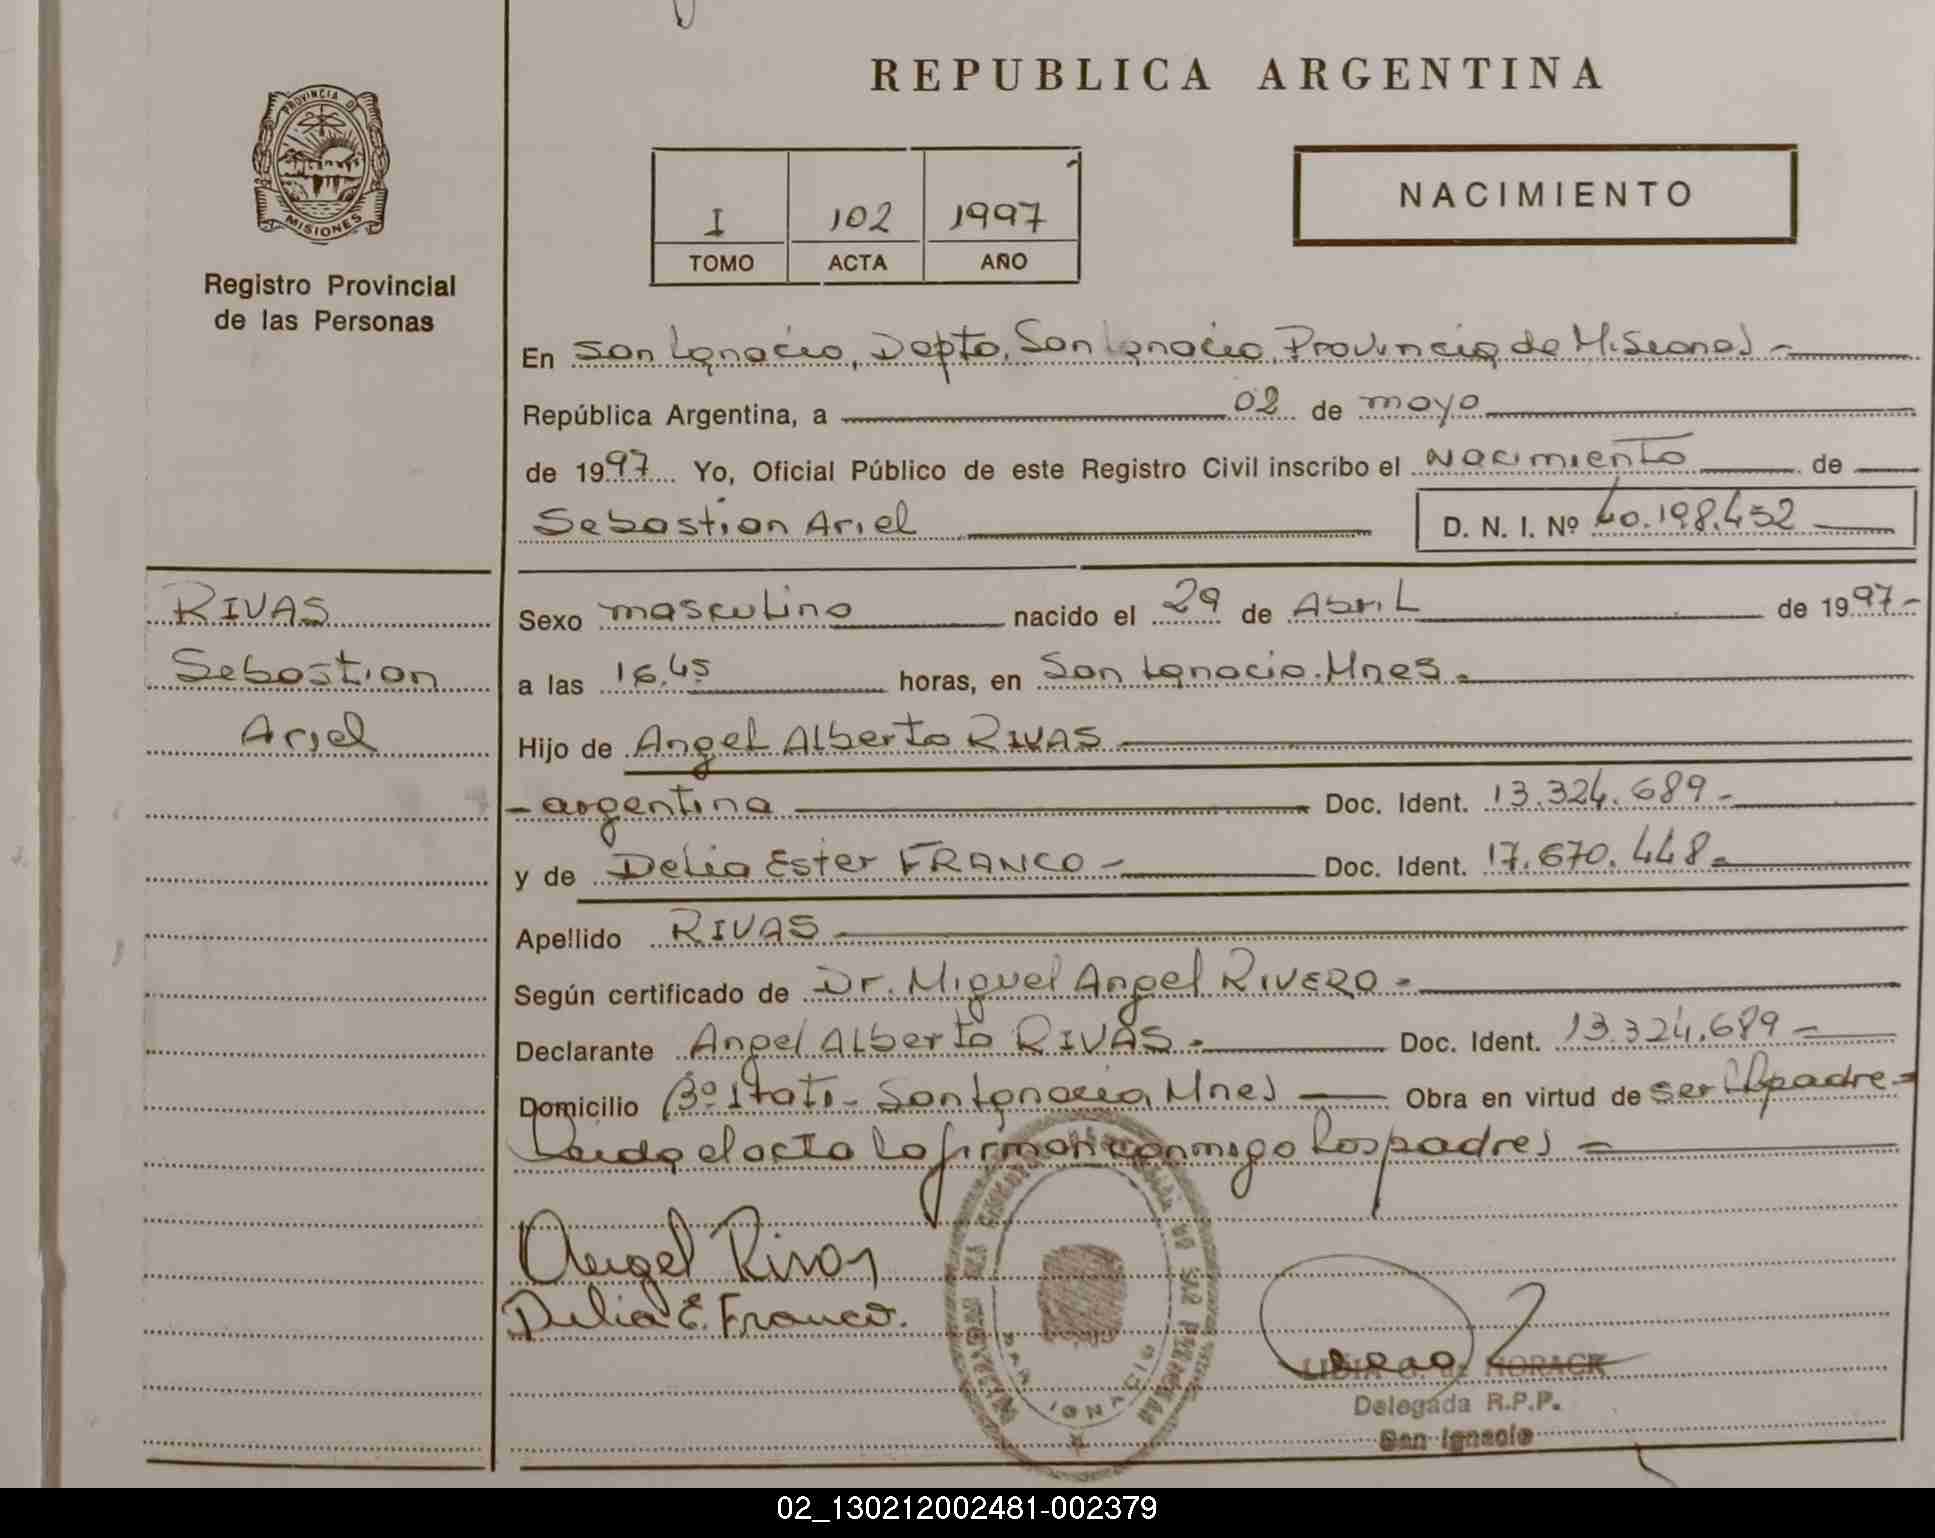 REPUBLICA ARGENTINA
PROVINCIA DE
MISIONES
Registro Provincial
de las Personas
I 102 1997
TOMO ACTA AÑO
NACIMIENTO
En San Ignacio, Depto. San Ignacio, Provincia de Misiones -
República Argentina, a 02 de mayo
de 1997 Yo, Oficial Público de este Registro Civil inscribo el Nacimiento de
Sebastian Ariel D. N. I. Nº 40.198.452
RIVAS
Sebastian
Ariel
Sexo masculino nacido el 29 de Abril de 1997-
a las 16.45 horas, en San Ignacio. Mnes.
Hijo de Angel Alberto RIVAS
- argentina Doc. Ident. 13.324.689-
y de Delia Ester FRANCO - Doc. Ident. 17.670.448-
Apellido RIVAS
Según certificado de Dr. Miguel Angel RIVERO -
Declarante Angel Alberto RIVAS.- Doc. Ident. 13.324.689 -
Domicilio Bº - San Ignacio, Mnes Obra en virtud de ser el padre -
Leida el acta la firman conmigo los padres -
Angel Rivas
Delia E. Franco.
SAN IGNACIO
HORACK
Delegada R.P.P.
San Ignacio
02_130212002481-002379